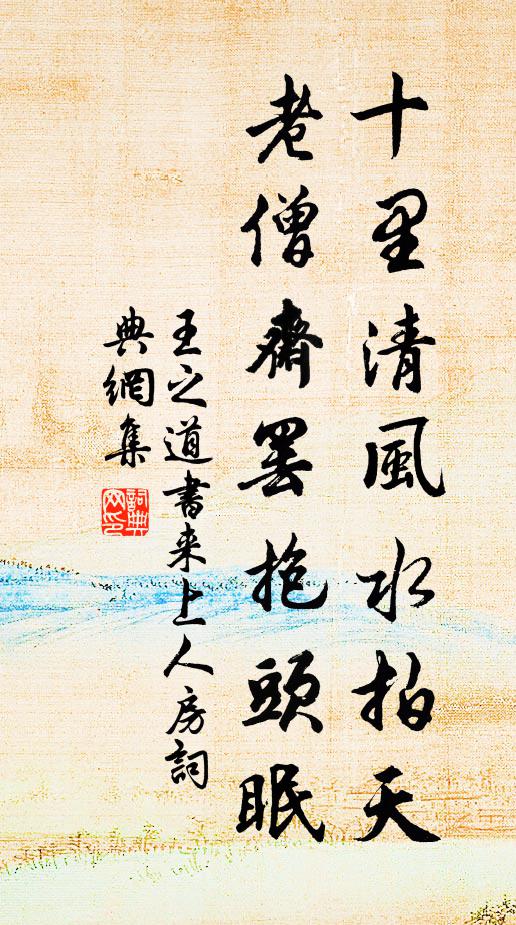 十里清風水拍天
老僧齋罷抱頭眠
王之道書来上人房詞
典網集
詞典
网印